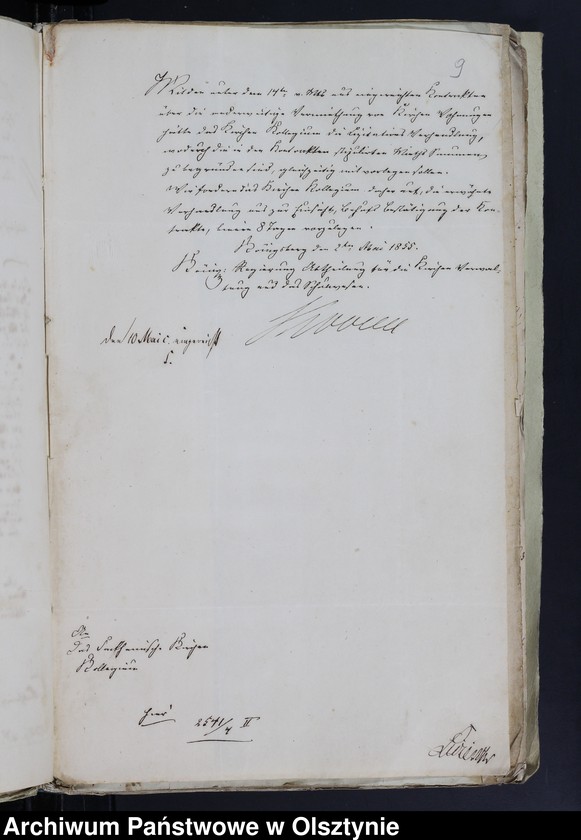 9
Mit den unter dem 14ten v. Mts uns eingereichten Kontrakten
über die anderweitige Vermiethung von Kirchen Wohnungen
hätte das Kirchen Kollegium die Lizitations Verhandlung,
wodurch die in den Kontrakten stipulirten Mieths Summen
zu begründen sind, gleichzeitig mit vorlegen sollen.
Wir fordern das Kirchen Kollegium daher auf, die erwähnte
Verhandlung uns zur Einsicht, behufs Bestätigung der Kon-
trakte, binnen 8 Tagen vorzulegen.
Königsberg den 2ten Mai 1855.
Königl: Regierung Abtheilung für die Kirchen Verwal-
tung und das Schulwesen.
den 10 Mai c. eingereicht
An
das Sackheimsche Kirchen
Kollegium
hier
2541/4 II
Archiwum Państwowe w Olsztynie